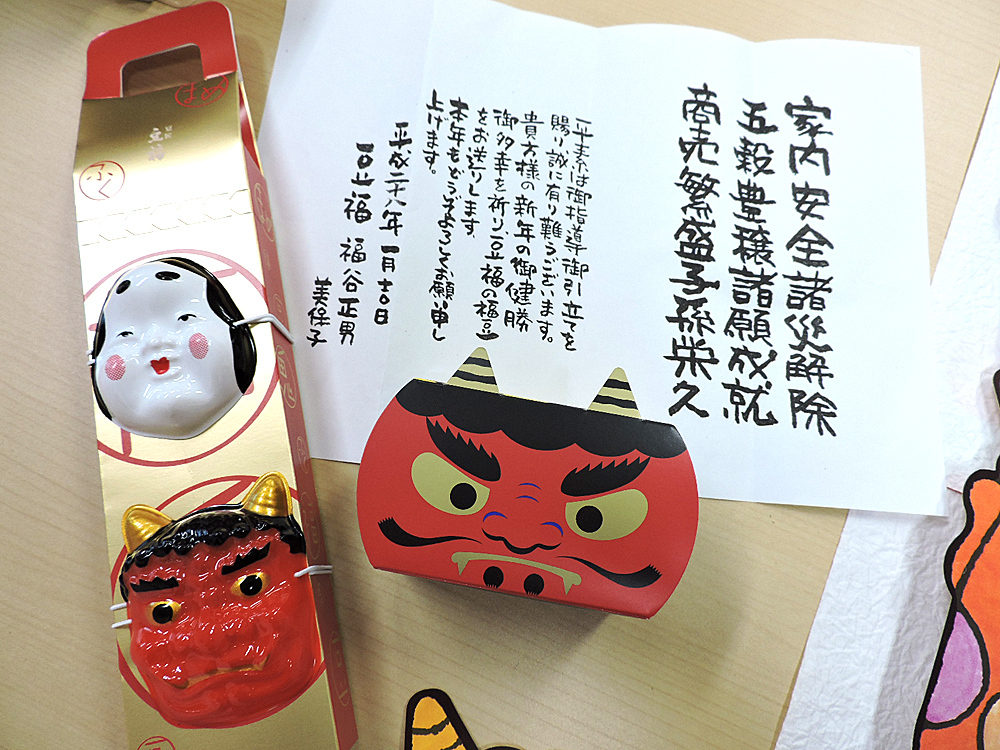 家内安全諸災解除
五穀豊穣諸願成就
商売繁盛子孫栄久
平素は御指導御引立てを
賜り誠に有り難うございます。
貴方様の新年の御健勝
御多幸を祈り、豆福の福豆
をお送りします。
本年もどうぞよろしくお願い申し
上げます。
平成二十八年 一月吉日
豆福 福谷正男
美保子
まめ
豆福
ふく